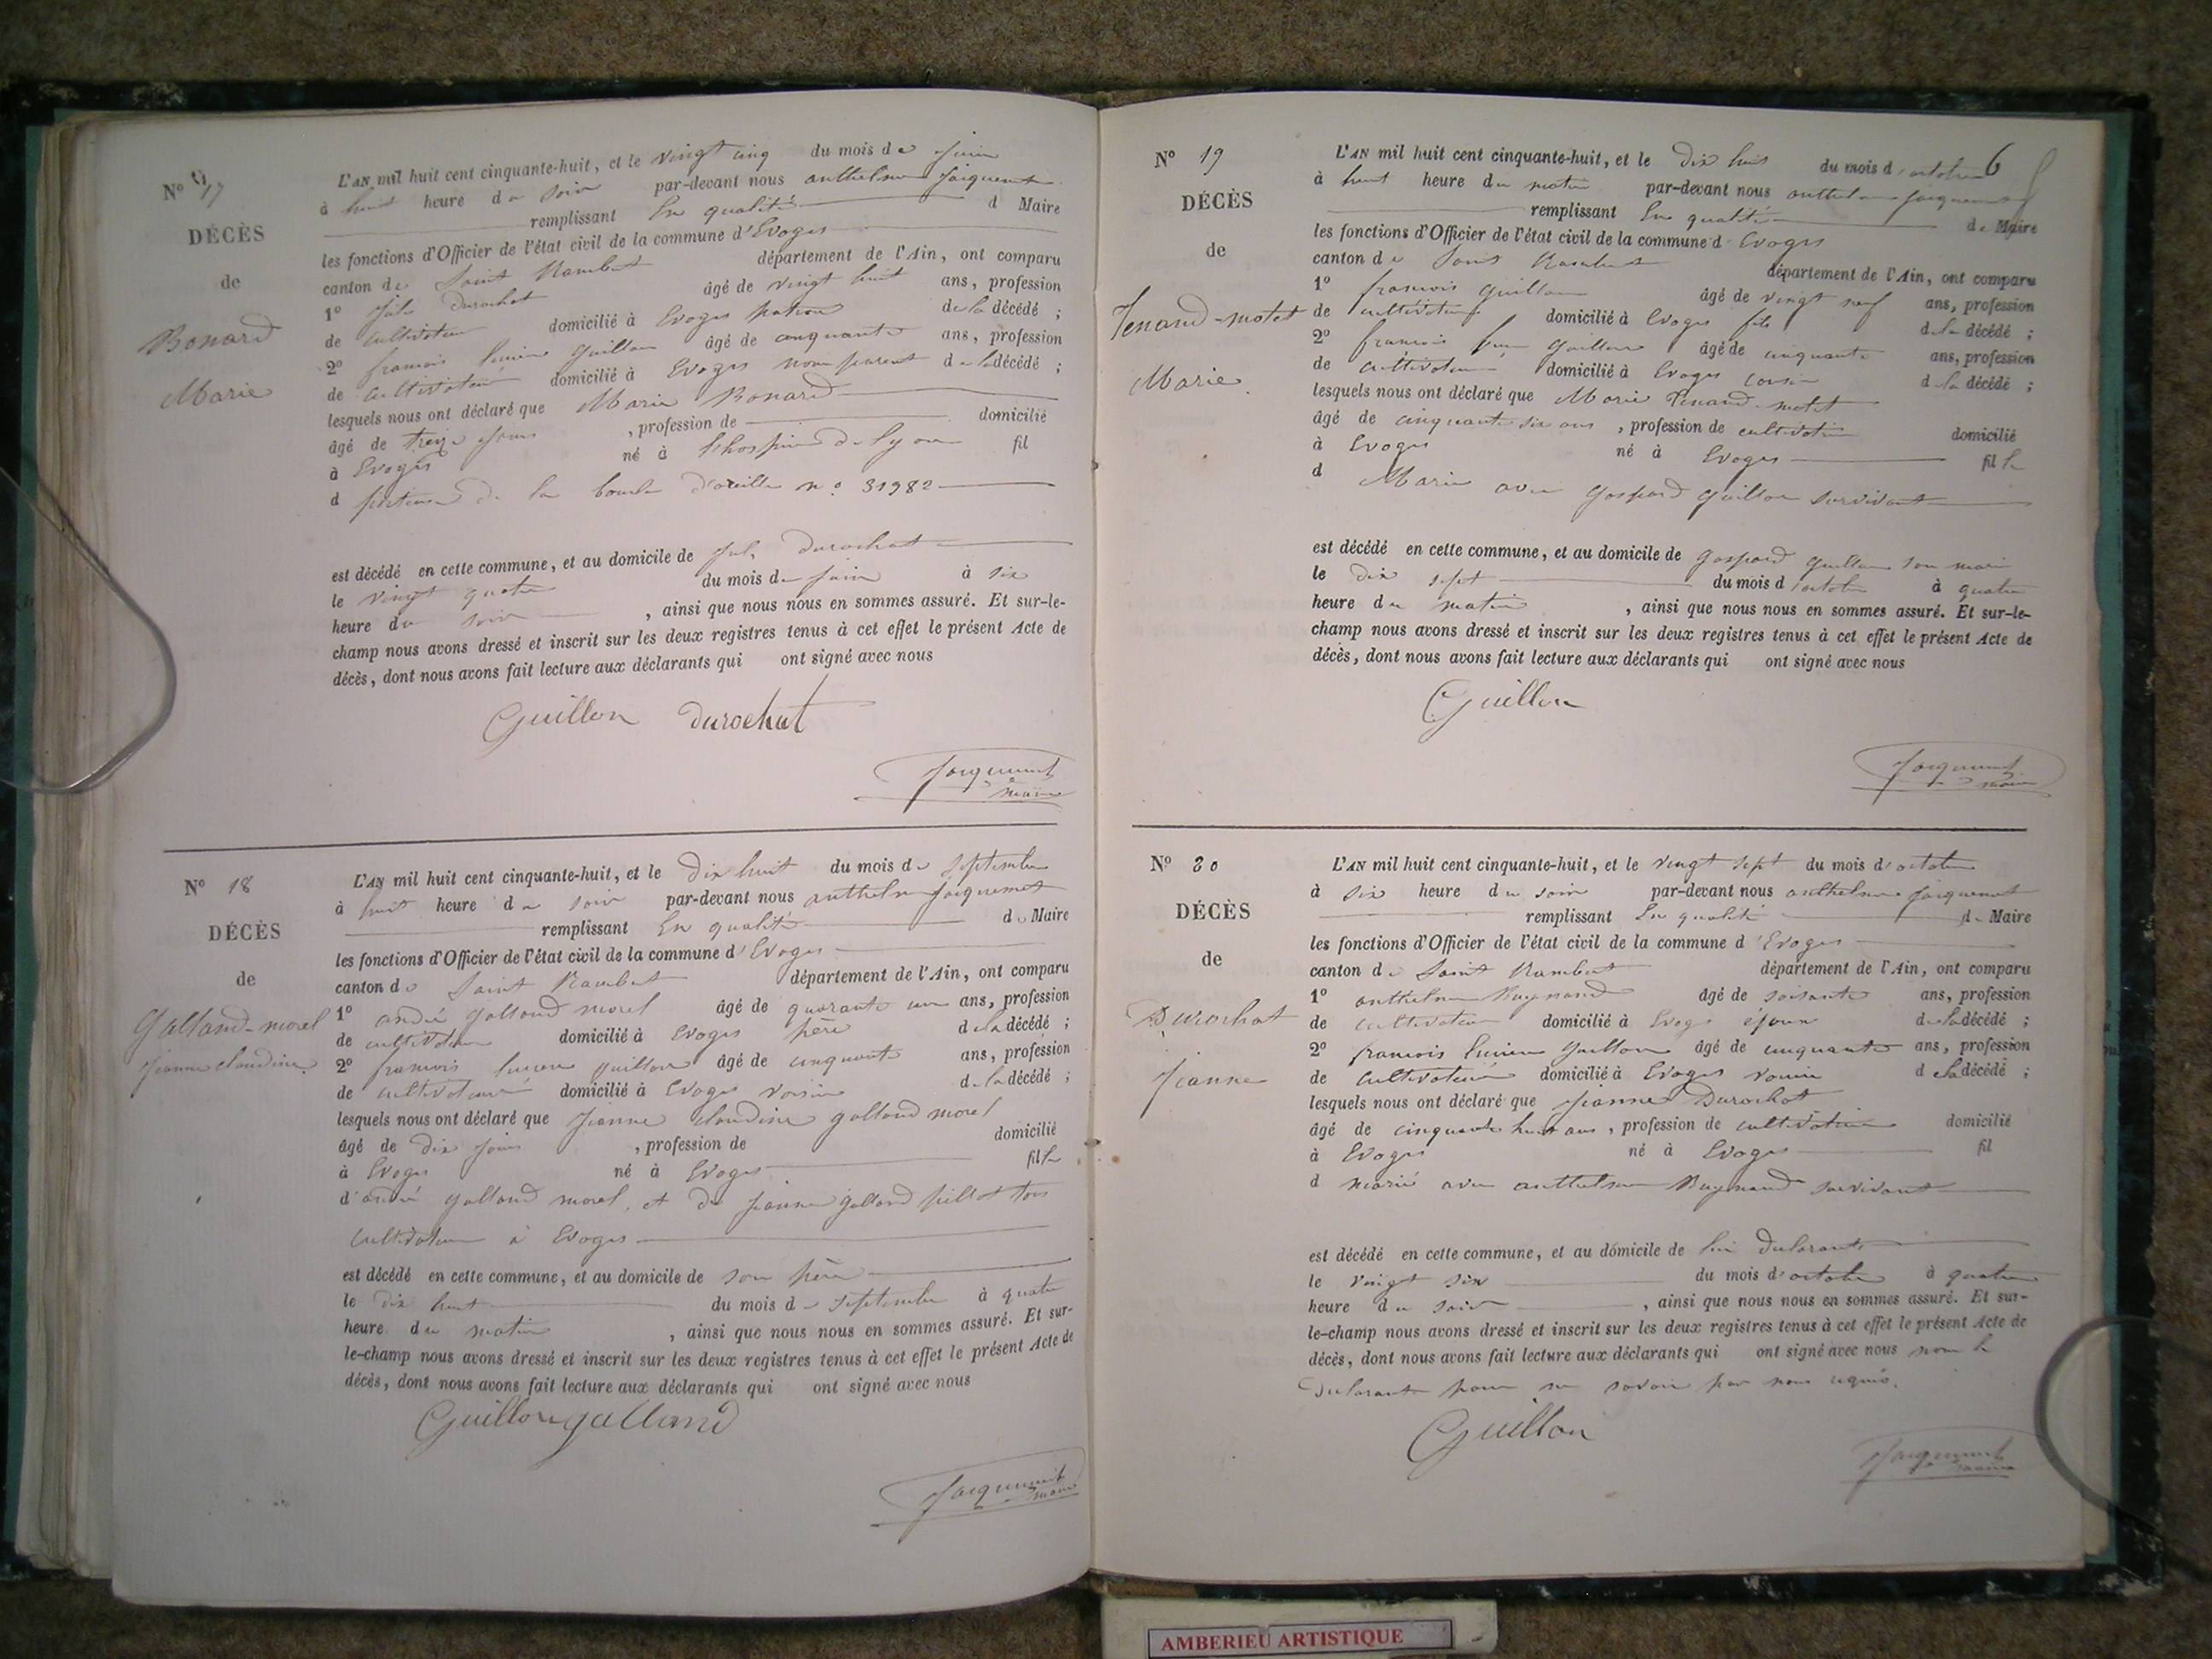 N° 17
DÉCÈS
de
Bonard
Marie
L'AN mil huit cent cinquante-huit, et le vingt cinq du mois de Juin
à huit heure du soir par-devant nous anthelme Jacquemet
remplissant En qualité de Maire
les fonctions d'Officier de l'état civil de la commune d'Evoges
canton de Saint Rambert département de l'Ain, ont comparu
1° Durochat âgé de vingt huit ans, profession
de cultivateur domicilié à Evoges de la décédé ;
2° francois lucien Guillon âgé de cinquante ans, profession
de cultivateur domicilié à Evoges non parent de la décédé ;
lesquels nous ont déclaré que Marie Bonard
âgé de treize jours , profession de domicilié
à Evoges né à l'hospice de lyon fil
d porteuse de la boucle d'oreille n° 31982
est décédé en cette commune, et au domicile de Durochat
le vingt quatre du mois de juin à six
heure du soir , ainsi que nous nous en sommes assuré. Et sur-le-
champ nous avons dressé et inscrit sur les deux registres tenus à cet effet le présent Acte de
décès, dont nous avons fait lecture aux déclarants qui ont signé avec nous
Guillon Durochat
Jacquemet
maire
N° 18
DÉCÈS
de
Galland-morel
jeanne claudine
L'AN mil huit cent cinquante-huit, et le Dix huit du mois de septembre
à huit heure du soir par-devant nous anthelme Jacquemet
remplissant En qualité de Maire
les fonctions d'Officier de l'état civil de la commune d'Evoges
canton de Saint Rambert département de l'Ain, ont comparu
1° andré galland morel âgé de quarante un ans, profession
de cultivateur domicilié à Evoges père de la décédé ;
2° francois lucien guillon âgé de cinquante ans, profession
de cultivateur domicilié à Evoges voisin de la décédé ;
lesquels nous ont déclaré que jeanne claudine galland morel
âgé de dix jours , profession de domicilié
à Evoges né à Evoges fille
d'andré galland morel, et de jeanne galland pillot tous
cultivateur à Evoges
est décédé en cette commune, et au domicile de son père
le dix huit du mois de septembre à quatre
heure du matin , ainsi que nous nous en sommes assuré. Et sur-
le-champ nous avons dressé et inscrit sur les deux registres tenus à cet effet le présent Acte de
décès, dont nous avons fait lecture aux déclarants qui ont signé avec nous
Guillon galland
Jacquemet
maire
6
N° 19
DÉCÈS
de
Tenand-motet
Marie
L'AN mil huit cent cinquante-huit, et le Dix huit du mois d'octobre
à huit heure du matin par-devant nous anthelme jacquemet
remplissant En qualité de Maire
les fonctions d'Officier de l'état civil de la commune d'Evoges
canton de Saint Rambert département de l'Ain, ont comparu
1° francois guillon âgé de vingt neuf ans, profession
de cultivateur domicilié à Evoges fils de la décédé ;
2° francois guillon âgé de cinquante ans, profession
de cultivateur domicilié à Evoges cousin de la décédé ;
lesquels nous ont déclaré que Marie Tenand-motet
âgé de cinquante six ans , profession de cultivatrice domicilié
à Evoges né à Evoges fille
d Marié avec gaspard guillon survivant
est décédé en cette commune, et au domicile de gaspard guillon son mari
le dix sept du mois d'octobre à quatre
heure du matin , ainsi que nous nous en sommes assuré. Et sur-le-
champ nous avons dressé et inscrit sur les deux registres tenus à cet effet le présent Acte de
décès, dont nous avons fait lecture aux déclarants qui ont signé avec nous
Guillon
Jacquemet
maire
N° 20
DÉCÈS
de
Durochat
jeanne
L'AN mil huit cent cinquante-huit, et le vingt sept du mois d'octobre
à six heure du soir par-devant nous anthelme jacquemet
remplissant En qualité de Maire
les fonctions d'Officier de l'état civil de la commune d'Evoges
canton de Saint Rambert département de l'Ain, ont comparu
1° anthelme Raynand âgé de soisante ans, profession
de cultivateur domicilié à Evoges époux de la décédé ;
2° francois lucien guillon âgé de cinquante ans, profession
de cultivateur domicilié à Evoges voisin de la décédé ;
lesquels nous ont déclaré que jeanne Durochat
âgé de cinquante huit ans , profession de cultivatrice domicilié
à Evoges né à Evoges fil
d marié avec anthelme Raynand survivant
est décédé en cette commune, et au domicile de lui déclarant
le vingt six du mois d'octobre à quatre
heure du soir , ainsi que nous nous en sommes assuré. Et sur-
le-champ nous avons dressé et inscrit sur les deux registres tenus à cet effet le présent Acte de
décès, dont nous avons fait lecture aux déclarants qui ont signé avec nous non le
Déclarant pour ne savoir par nous requis.
Guillon
Jacquemet
maire
AMBERIEU ARTISTIQUE